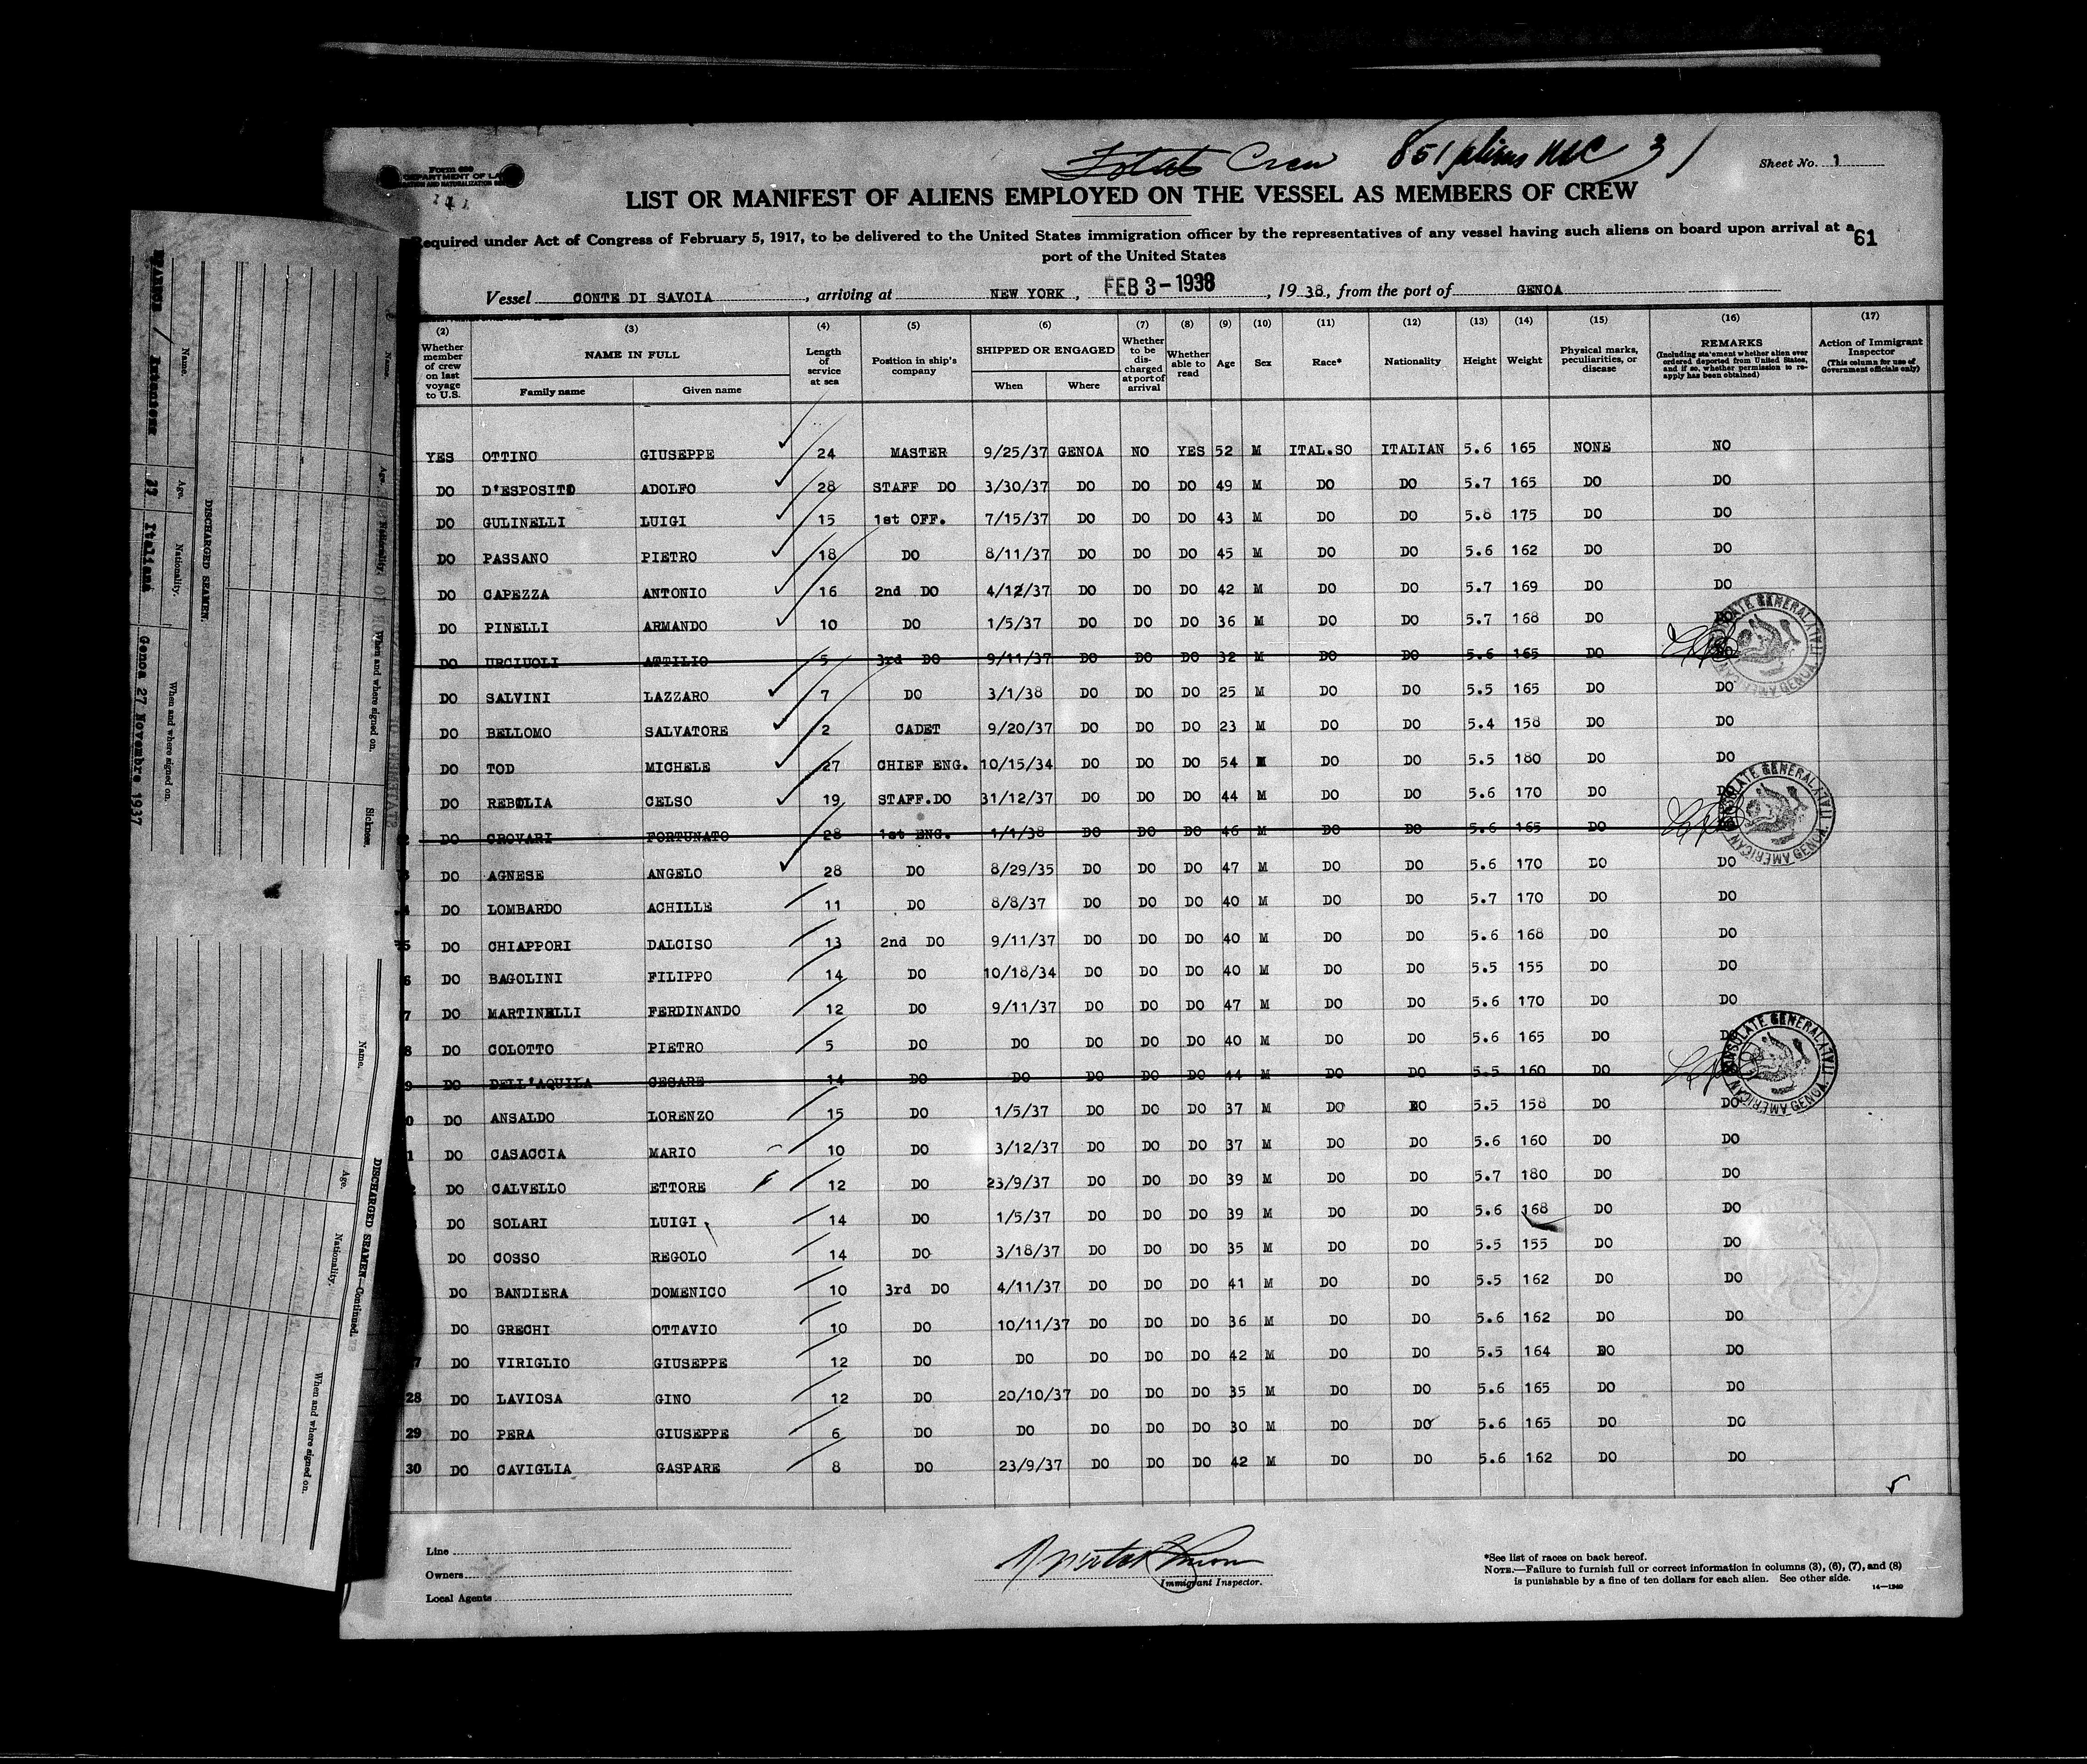 Total Crew 851 aliens
Sheet No. 1
Form 680
DEPARTMENT OF LA
LIST OR MANIFEST OF ALIENS EMPLOYED ON THE VESSEL AS MEMBERS OF CREW
Required under Act of Congress of February 5, 1917, to be delivered to the United States immigration officer by the representatives of any vessel having such aliens on board upon arrival at a
port of the United States
61
Vessel CONTE DI SAVOIA, arriving at NEW YORK, FEB 3-1938, 1938, from the port of GENOA
(2) (3) (4) (5) (6) (7) (8) (9) (10) (11) (12) (13) (14) (15) (16) (17)
Whether member of crew on last voyage to U.S. NAME IN FULL Family name Given name Length of service at sea Position in ship's company SHIPPED OR ENGAGED When Where Whether to be discharged at port of arrival Whether able to read Age Sex Race* Nationality Height Weight Physical marks, peculiarities, or disease REMARKS (Including statement whether alien ever ordered deported from United States, and if so, whether permission to reapply has been obtained) Action of Immigrant Inspector (This column for use of Government officials only)
YES OTTINO GIUSEPPE 24 MASTER 9/25/37 GENOA NO YES 52 M ITAL.SO ITALIAN 5.6 165 NONE NO
DO D'ESPOSITO ADOLFO 28 STAFF DO 3/30/37 DO DO DO 49 M DO DO 5.7 165 DO DO
DO GULINELLI LUIGI 15 1st OFF. 7/15/37 DO DO DO 43 M DO DO 5.8 175 DO DO
DO PASSANO PIETRO 18 DO 8/11/37 DO DO DO 45 M DO DO 5.6 162 DO DO
DO CAPEZZA ANTONIO 16 2nd DO 4/12/37 DO DO DO 42 M DO DO 5.7 169 DO DO
DO PINELLI ARMANDO 10 DO 1/5/37 DO DO DO 36 M DO DO 5.7 168 DO DO
DO URCIUOLI ATTILIO 5 3rd DO 9/11/37 DO DO DO 32 M DO DO 5.6 165 DO DO
DO SALVINI LAZZARO 7 DO 3/1/38 DO DO DO 25 M DO DO 5.5 165 DO DO
DO BELLOMO SALVATORE 2 CADET 9/20/37 DO DO DO 23 M DO DO 5.4 158 DO DO
DO TOD MICHELE 27 CHIEF ENG. 10/15/34 DO DO DO 54 M DO DO 5.5 180 DO DO
DO REBOLIA CELSO 19 STAFF.DO 31/12/37 DO DO DO 44 M DO DO 5.6 170 DO DO
2 DO CROVARI FORTUNATO 28 1st ENG. 1/1/38 DO DO DO 46 M DO DO 5.6 165 DO DO
3 DO AGNESE ANGELO 28 DO 8/29/35 DO DO DO 47 M DO DO 5.6 170 DO DO
4 DO LOMBARDO ACHILLE 11 DO 8/8/37 DO DO DO 40 M DO DO 5.7 170 DO DO
5 DO CHIAPPORI DALCISO 13 2nd DO 9/11/37 DO DO DO 40 M DO DO 5.6 168 DO DO
6 DO BAGOLINI FILIPPO 14 DO 10/18/34 DO DO DO 40 M DO DO 5.5 155 DO DO
7 DO MARTINELLI FERDINANDO 12 DO 9/11/37 DO DO DO 47 M DO DO 5.6 170 DO DO
8 DO COLOTTO PIETRO 5 DO DO DO DO DO 40 M DO DO 5.6 165 DO DO
9 DO DELL'AQUILA CESARE 14 DO DO DO DO DO 44 M DO DO 5.5 160 DO
0 DO ANSALDO LORENZO 15 DO 1/5/37 DO DO DO 37 M DO DO 5.5 158 DO DO
1 DO CASACCIA MARIO 10 DO 3/12/37 DO DO DO 37 M DO DO 5.6 160 DO DO
2 DO CALVELLO ETTORE 12 DO 23/9/37 DO DO DO 39 M DO DO 5.7 180 DO DO
DO SOLARI LUIGI 14 DO 1/5/37 DO DO DO 39 M DO DO 5.6 168 DO DO
DO COSSO REGOLO 14 DO 3/18/37 DO DO DO 35 M DO DO 5.5 155 DO DO
DO BANDIERA DOMENICO 10 3rd DO 4/11/37 DO DO DO 41 M DO DO 5.5 162 DO DO
DO GRECHI OTTAVIO 10 DO 10/11/37 DO DO DO 36 M DO DO 5.6 162 DO DO
7 DO VIRIGLIO GIUSEPPE 12 DO DO DO DO DO 42 M DO DO 5.5 164 DO DO
28 DO LAVIOSA GINO 12 DO 20/10/37 DO DO DO 35 M DO DO 5.6 165 DO DO
29 DO PERA GIUSEPPE 6 DO DO DO DO DO 30 M DO DO 5.6 165 DO DO
30 DO CAVIGLIA GASPARE 8 DO 23/9/37 DO DO DO 42 M DO DO 5.6 162 DO DO
AMERICAN CONSULATE GENERAL GENOA, ITALY
AMERICAN CONSULATE GENERAL GENOA, ITALY
AMERICAN CONSULATE GENERAL GENOA, ITALY
Line
Owners
Local Agents
Immigrant Inspector.
*See list of races on back hereof.
NOTE.—Failure to furnish full or correct information in columns (3), (6), (7), and (8)
is punishable by a fine of ten dollars for each alien. See other side.
14—1240
DISCHARGED SEAMEN.
Name. Age. Nationality. When and where signed on. Sickness.
Italiana Genoa 27 Novembre 1937
DISCHARGED SEAMEN—Continued.
Name. Age. Nationality. When and where signed on.